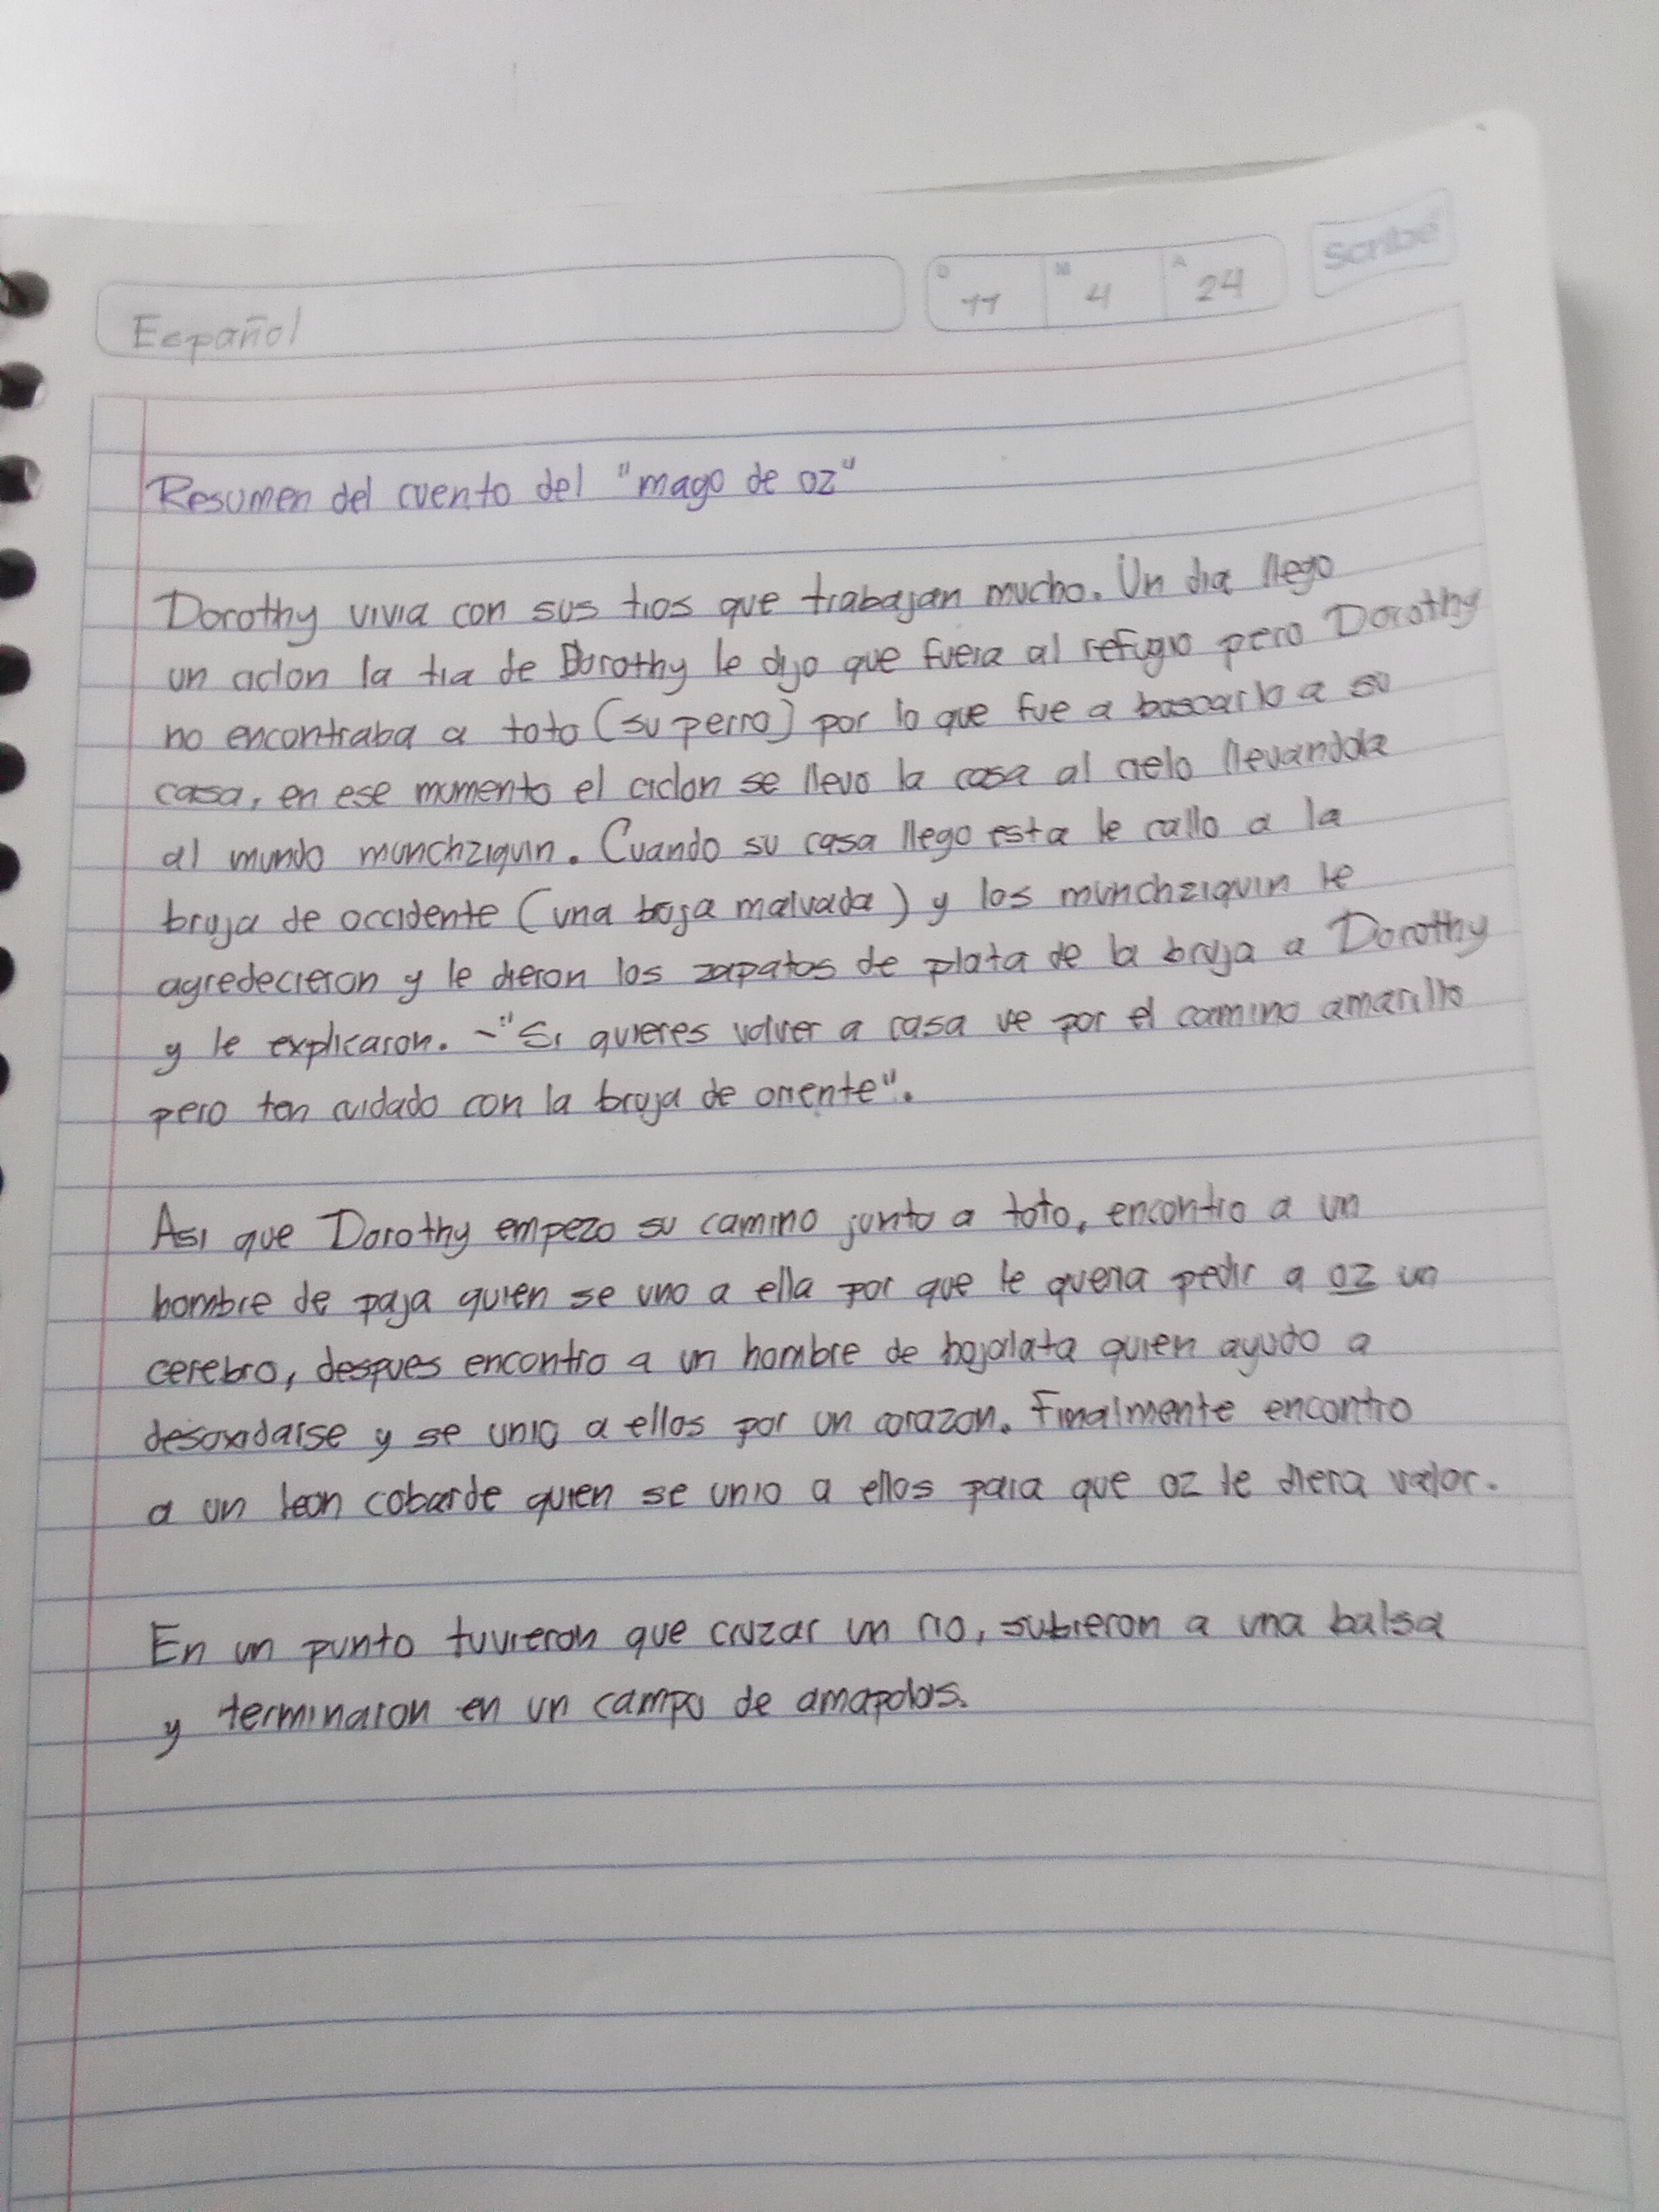 Español
D 11 M 4 A 24
Scribe
Resumen del cuento del "mago de oz"
Dorothy vivia con sus tios que trabajan mucho. Un dia llego
un ciclon la tia de Dorothy le dijo que fuera al refugio pero Dorothy
no encontraba a toto (su perro) por lo que fue a buscarlo a su
casa, en ese momento el ciclon se llevo la casa al cielo llevandola
al mundo munchziquin. Cuando su casa llego esta le callo a la
bruja de occidente (una bruja malvada) y los munchziquin le
agredecieron y le dieron los zapatos de plata de la bruja a Dorothy
y le explicaron. -"Si quieres volver a casa ve por el camino amarillo
pero ten cuidado con la bruja de oriente".
Asi que Dorothy empezo su camino junto a toto, encontro a un
hombre de paja quien se uno a ella por que le queria pedir a oz un
cerebro, despues encontro a un hombre de hojalata quien ayudo a
desoxidarse y se unio a ellos por un corazon. Finalmente encontro
a un leon cobarde quien se unio a ellos para que oz le diera valor.
En un punto tuvieron que cruzar un rio, subieron a una balsa
y terminaron en un campo de amapolas.